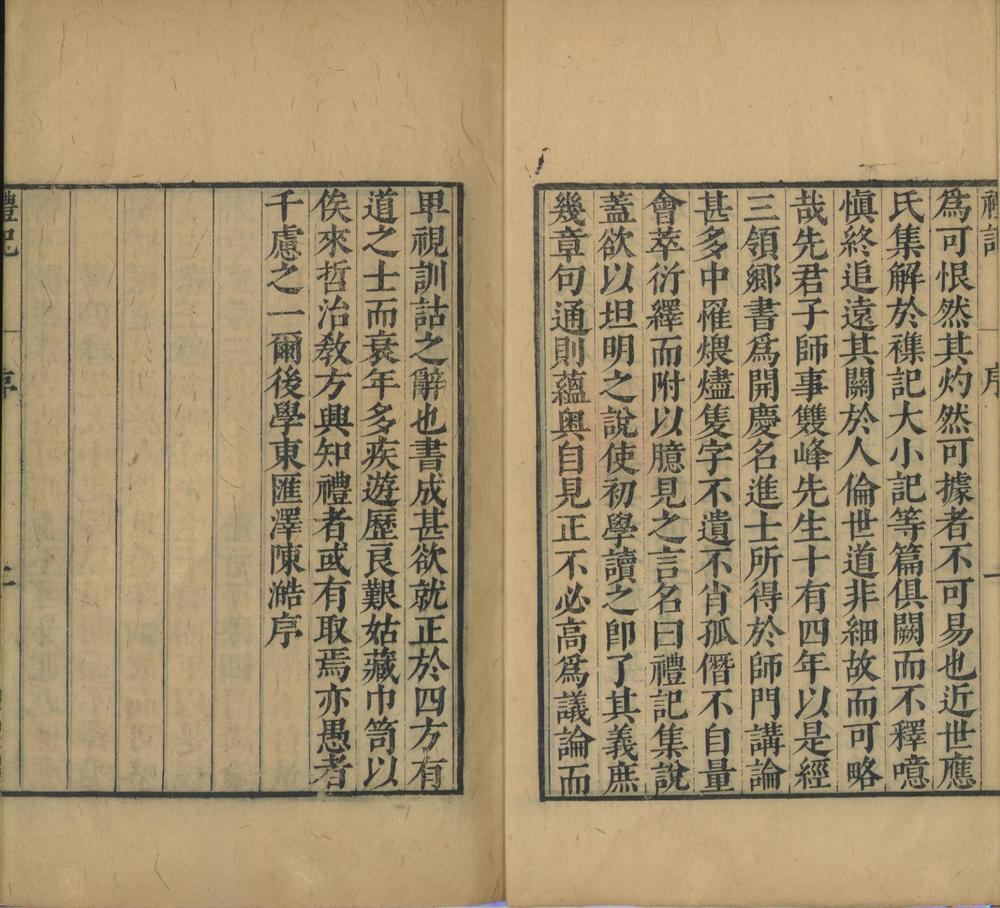 禮記 序 一
爲可恨然其灼然可據者不可易也近世應
氏集解於襍記大小記等篇俱闕而不釋噫
愼終追遠其關於人倫世道非細故而可略
哉先君子師事雙峰先生十有四年以是經
三領鄉書爲開慶名進士所得於師門講論
甚多中罹煨燼隻字不遺不肖孤僭不自量
會萃衍繹而附以臆見之言名曰禮記集說
蓋欲以坦明之說使初學讀之卽了其義庶
幾章句通則蘊奧自見正不必高爲議論而
卑視訓詁之辭也書成甚欲就正於四方有
道之士而衰年多疾遊歷良艱姑藏巾笥以
俟來哲治教方興知禮者或有取焉亦愚者
千慮之一爾後學東匯澤陳澔序
禮記 序